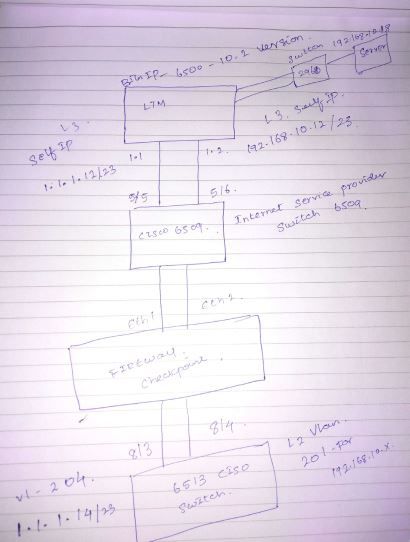 Big IP - 6500 - 10.2 version.
Switch
192.168.10.18
2960
Server
LTM
L3.
Self IP
1.1.1.12/23
L3. Self Ip.
192.168.10.12/23
1.1
1.2
5/5
5/6.
Cisco 6509.
Internet Service provider
Switch 6509.
Eth1
Eth2
Firewall.
Checkpoint.
8/3
8/4
6513 Ciso
Switch.
vl - 204.
1.1.1.14/23
L2 Vlan.
201 - for
192.168.10.x.